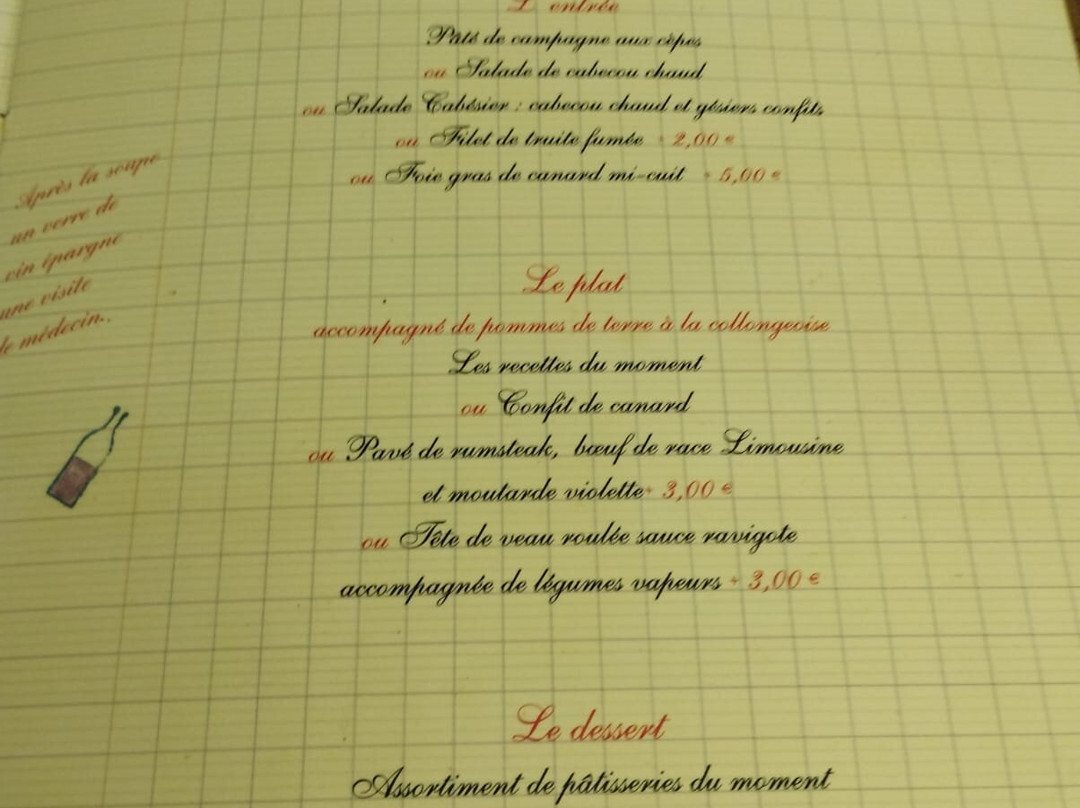 L'entrée
Pâté de campagne aux cèpes
ou Salade de cabecou chaud
ou Salade Cabésier : cabecou chaud et gésiers confits
ou Filet de truite fumée + 2,00 €
ou Foie gras de canard mi-cuit + 5,00 €
Après la soupe
un verre de
vin épargne
une visite
le médecin..
Le plat
accompagné de pommes de terre à la collongeoise
Les recettes du moment
ou Confit de canard
ou Pavé de rumsteak, bœuf de race Limousine
et moutarde violette + 3,00 €
ou Tête de veau roulée sauce ravigote
accompagnée de légumes vapeurs + 3,00 €
Le dessert
Assortiment de pâtisseries du moment